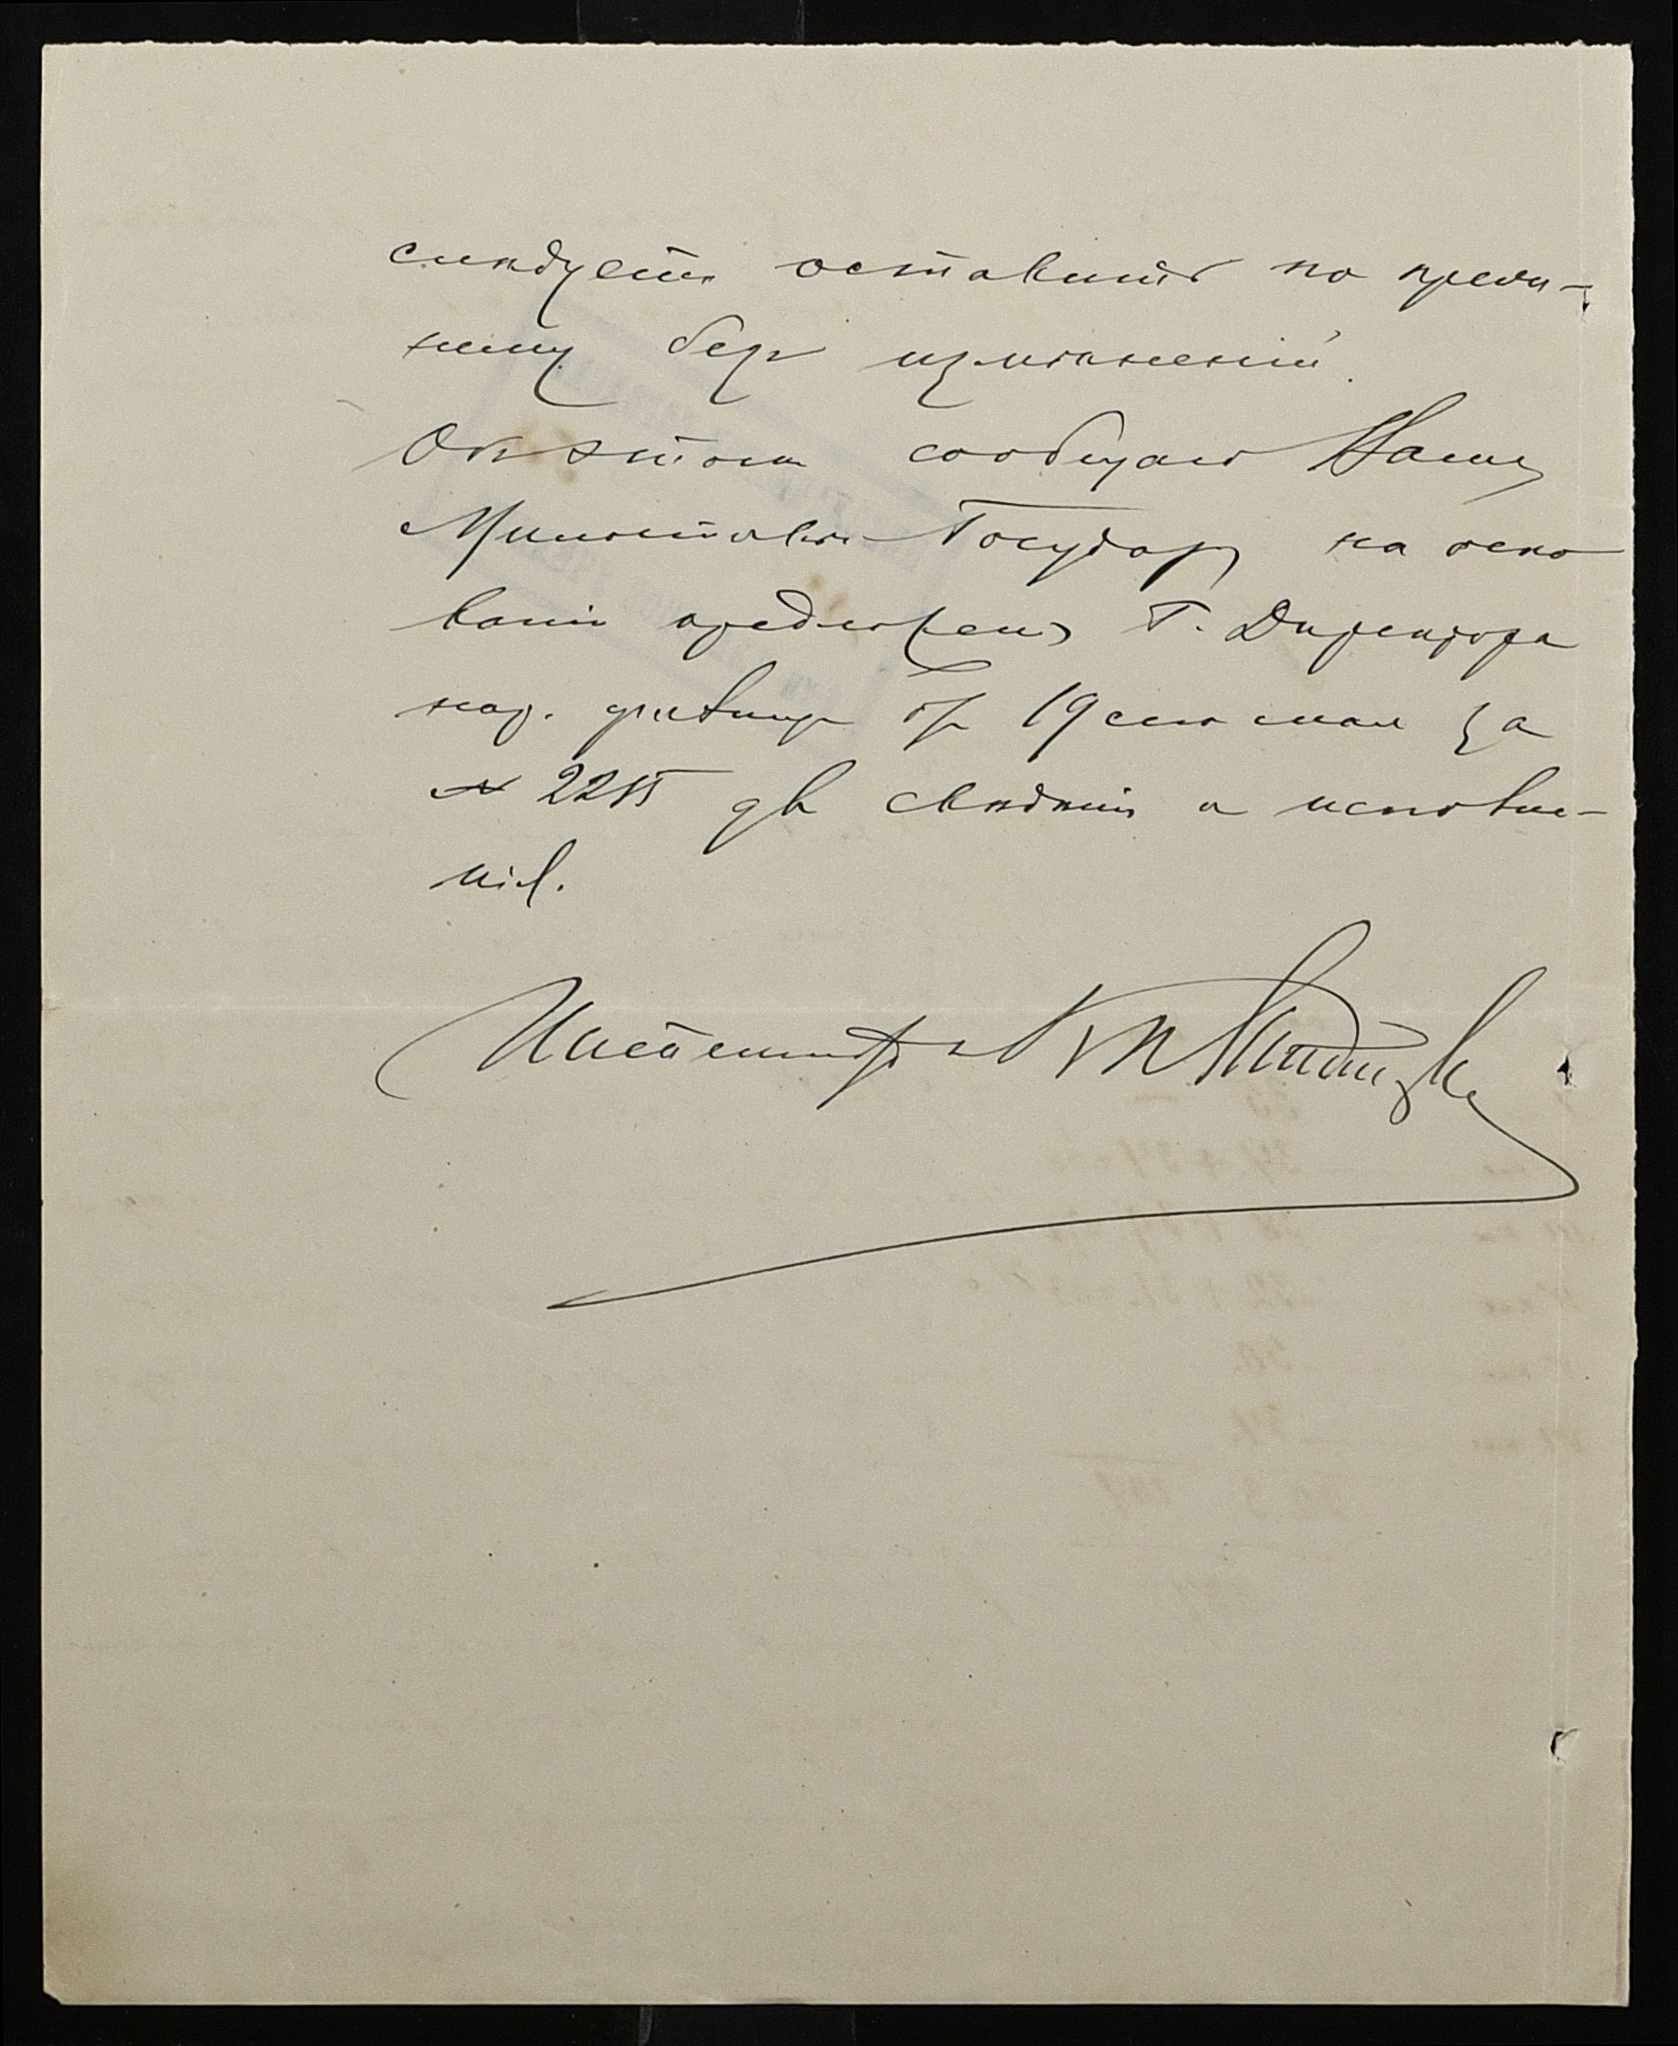 слѣдуетъ оставить по преж-
нему безъ измѣненій.
Объ этомъ сообщаю Вамъ,
Милостивый Государь, на осно
ваніи предложенія Г. Директора
нар. училищъ отъ 19 сего мая за
№ 2215 для свѣдѣнія и исполне-
нія.
Инспекторъ